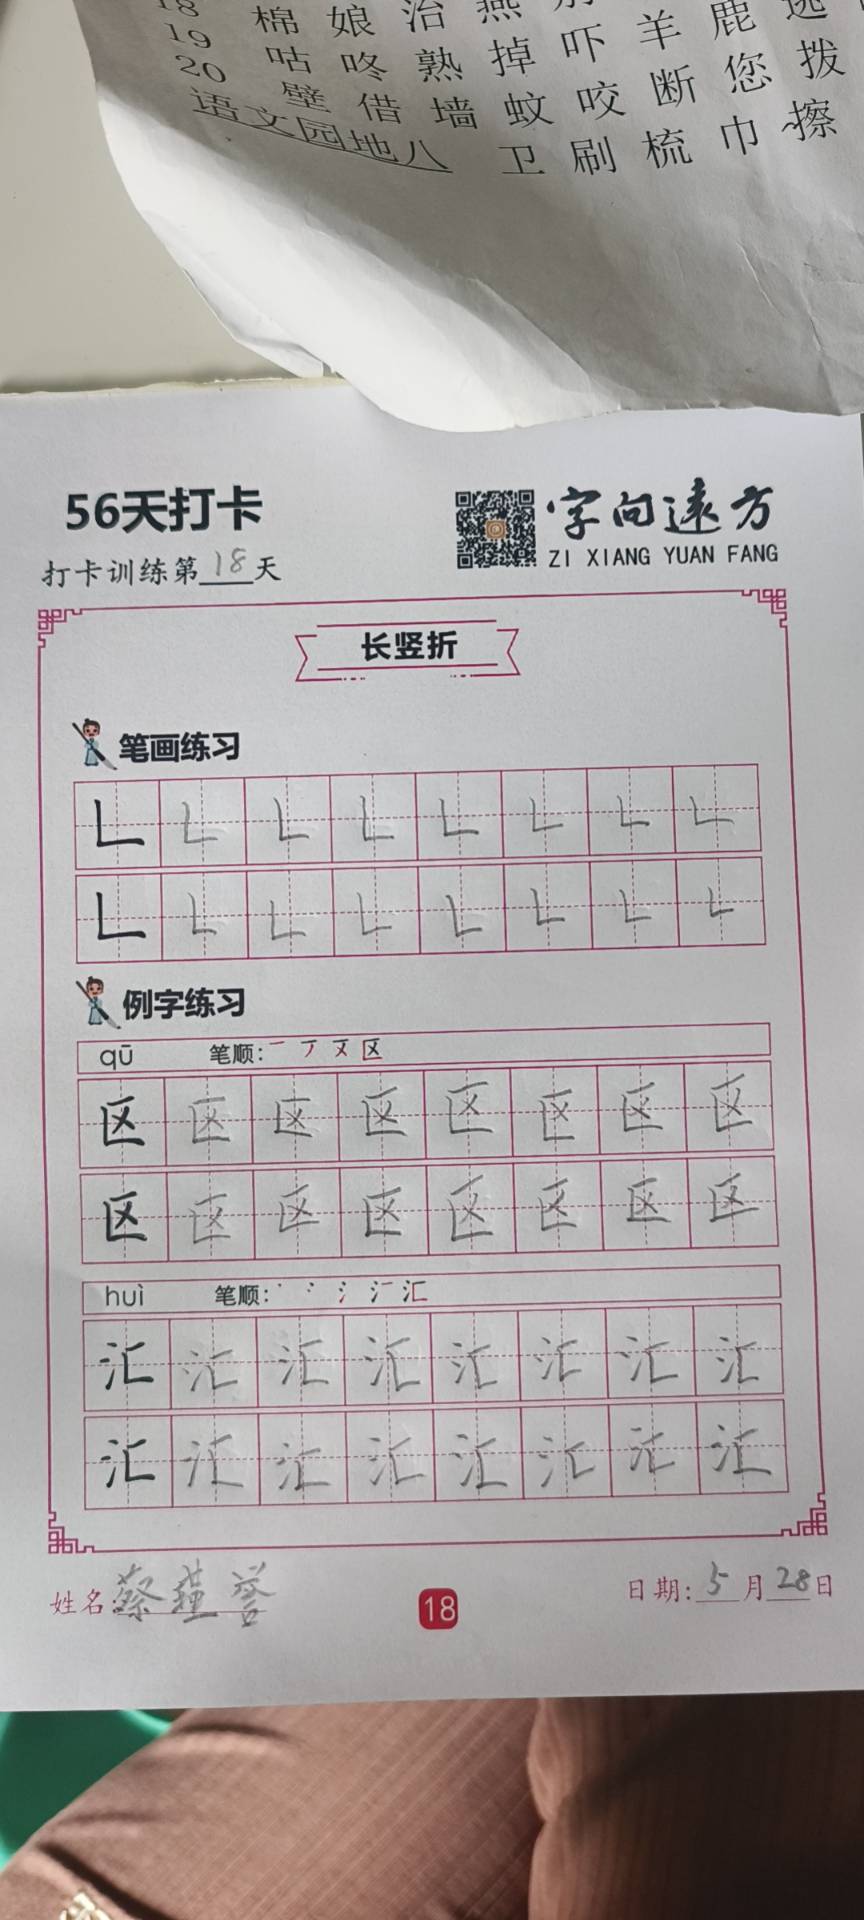 18 棉 娘 治 燕
19 咕 咚 熟 掉 吓 羊 鹿
20 壁 借 墙 蚊 咬 断 您 拨
语文园地八 卫 刷 梳 巾 擦
56天打卡
字向远方
ZI XIANG YUAN FANG
打卡训练第18天
长竖折
笔画练习
例字练习
qū 笔顺: 区
区 区 区 区 区 区 区 区
区 区 区 区 区 区 区 区
huì 笔顺: 汇
汇 汇 汇 汇 汇 汇 汇 汇
汇 汇 汇 汇 汇 汇 汇 汇
姓名: 蔡瑾誉
18
日期: 5月28日